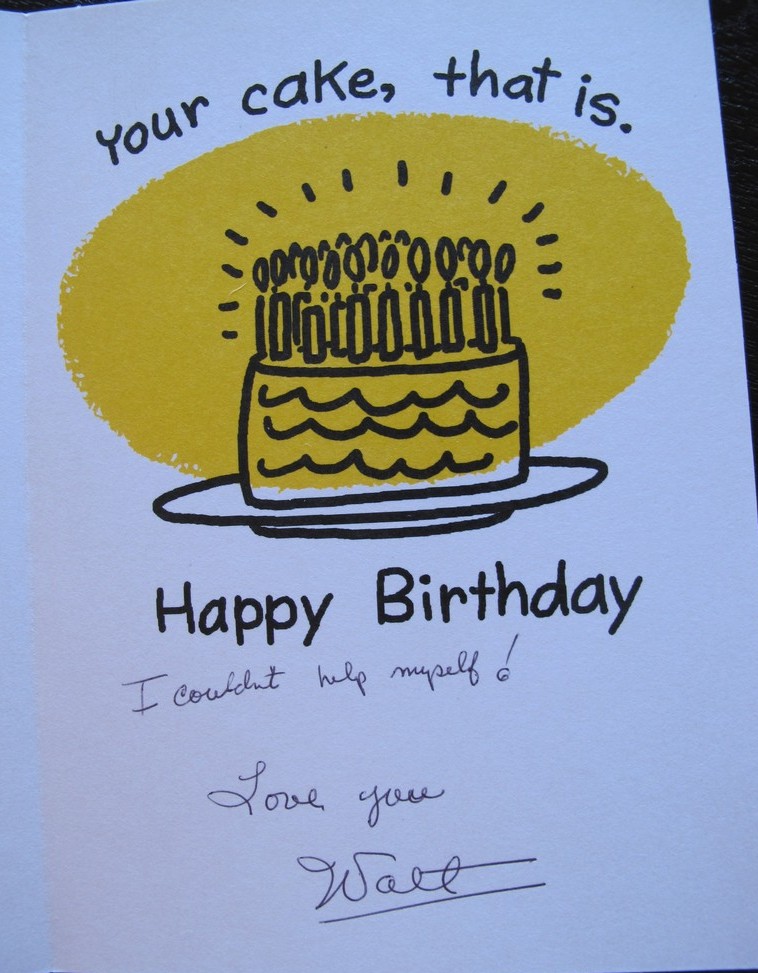 Your cake, that is.
Happy Birthday
I couldn't help myself!
Love you
Walt